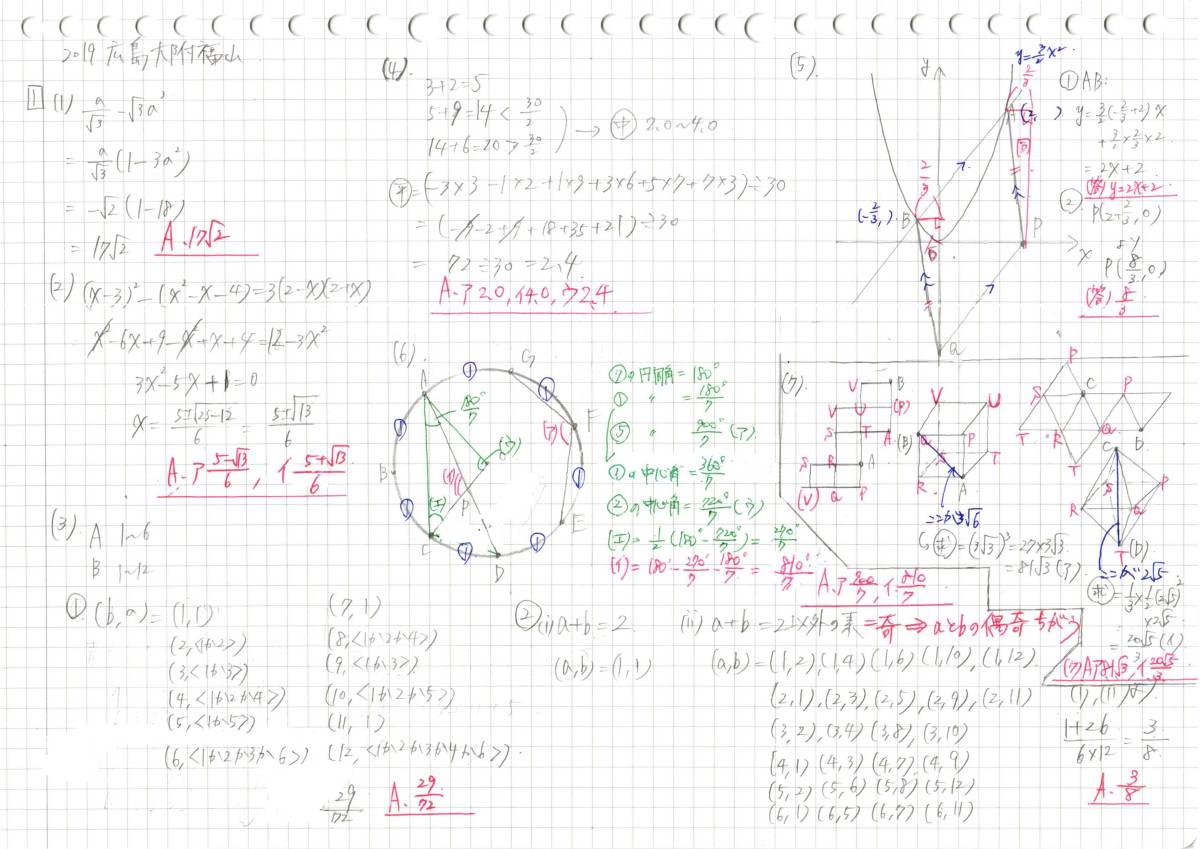 2019 広島大附福山
1 (1) a/√3 - √3a³
= a/√3 (1-3a²)
= -√2 (1-18)
= 17√2 A. 17√2
(2) (x-3)² - (x²-x-4) = 3(2-x)(2+x)
x²-6x+9-x²+x+4=12-3x²
3x²-5x+1=0
x = 5±√25-12/6 = 5±√13/6
A. ア 5-√13/6 , イ 5+√13/6
(3). A 1~6
B 1~12
① (b,a) = (1,1)
(2,<1か2>)
(3,<1か3>)
(4,<1か2か4>)
(5,<1か5>)
(6,<1か2か3か6>)
(7, 1)
(8,<1か2か4>)
(9,<1か3>)
(10,<1か2か5>)
(11, 1)
(12,<1か2か3か4か6>)
29/72 A. 29/72
② (i) a+b=2
(a,b)=(1,1)
(ii) a+b=2以外の素=奇⇒aとbの偶奇ちがう
(a,b)=(1,2),(1,4)(1,6)(1,10),(1,12)
(2,1),(2,3),(2,5),(2,9),(2,11)
(3,2),(3,4)(3,8),(3,10)
(4,1)(4,3)(4,7),(4,9)
(5,2)(5,6)(5,8)(5,12)
(6,1)(6,5)(6,7)(6,11)
(i),(ii)より
1+26/6×12 = 3/8
A. 3/8
(4).
3+2=5
5+9=14 < 30/2
14+6=20 > 30/2
→ 中 2.0~4.0
平=(-3×3-1×2+1×9+3×6+5×7+7×3)÷30
=(-9-2+9+18+35+21)÷30
= 72÷30=2.4
A. ア2.0, イ4.0, ウ2.4
(5).
y=3/2x²
y
2/3
A(2, )
2/3
(-2/3, )B
6
6
P
x
Q
① AB:
y=3/2(-2/3+2)x
+3/2×2/3×2
=2x+2
(答) y=2x+2
② P(2+2/3,0)
より
P(8/3,0)
(答) 8/3
(6).
A
G
F
E
D
C
B
P
180°/7
(ア)
(イ)
(ウ)
(エ)
① ① ① ① ① ① ①
⑦の円周角=180°
① 〃 =180°/7
⑤ 〃 900°/7(ア)
①の中心角=360°/7
②の中心角=720°/7(ウ)
(エ)=1/2(180°-720°/7)=270°/7
(イ)=180°-270°/7-180°/7=810°/7
A. ア 900/7, イ 810/7
(7).
V B
V U (P)
S T A
S R A
(V) Q P
V U
(B) Q P
S T
R A
ここが3√6
P
S C P
T R Q D
T
C
S P
R Q
T(D)
ここが2√5
求=(3√3)³=27×3√3
=81√3(ア)
求=1/3×1/2(2√5)²
×2√5
=20√5/3(イ)
(7)A.ア81√3,イ20√5/3